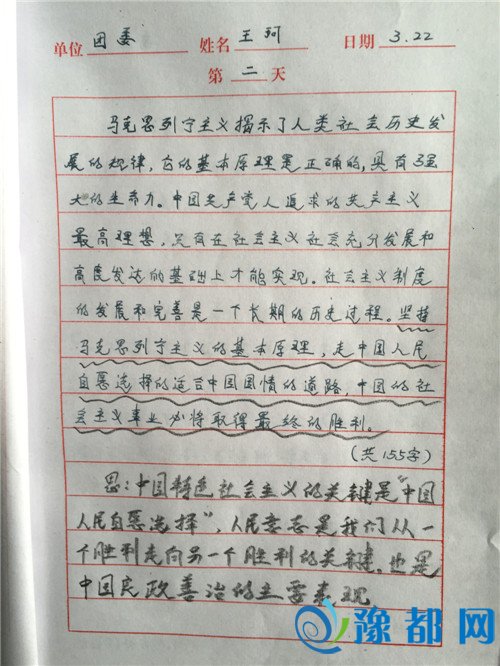 单位 团委 姓名 王珂 日期 3.22
第 二 天
马克思列宁主义揭示了人类社会历史发
展的规律,它的基本原理是正确的,具有强
大的生命力。中国共产党人追求的共产主义
最高理想,只有在社会主义社会充分发展和
高度发达的基础上才能实现。社会主义制度
的发展和完善是一个长期的历史过程。坚持
马克思列宁主义的基本原理,走中国人民
自愿选择的适合中国国情的道路,中国的社
会主义事业必将取得最终的胜利。
(共155字)
思:中国特色社会主义的关键是"中国
人民自愿选择",人民意志是我们从一
个胜利走向另一个胜利的关键,也是
中国民政善治的主要表现
豫都网